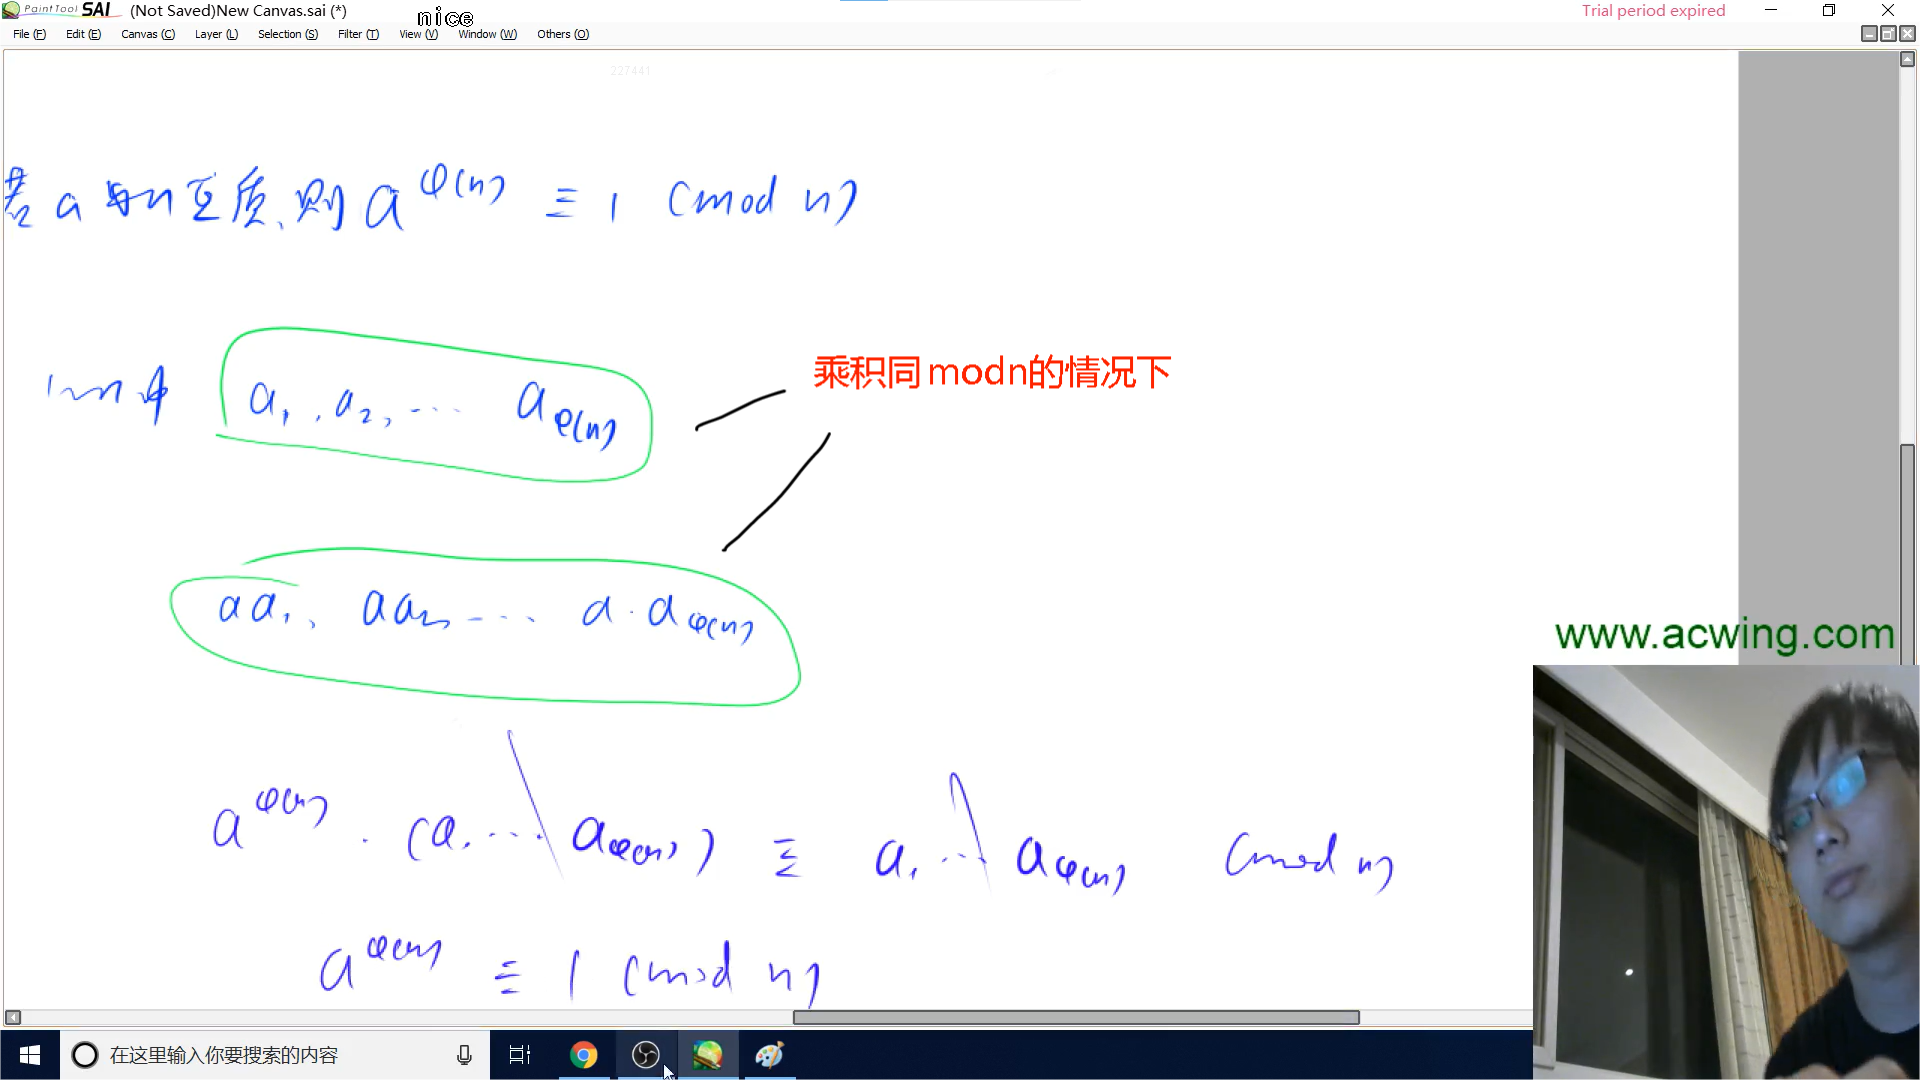 PaintTool SAI (Not Saved)New Canvas.sai (*) nice Trial period expired
File (F) Edit (E) Canvas (C) Layer (L) Selection (S) Filter (T) View (V) Window (W) Others (O)
227441
若a与n互质,则 a^φ(n) ≡ 1 (mod n)
1~n中 a₁, a₂, ... a_φ(n)
乘积同modn的情况下
aa₁, aa₂, ... a·a_φ(n)
www.acwing.com
a^φ(n) · (a₁ ... a_φ(n)) ≡ a₁ ... a_φ(n) (mod n)
a^φ(n) ≡ 1 (mod n)
在这里输入你要搜索的内容